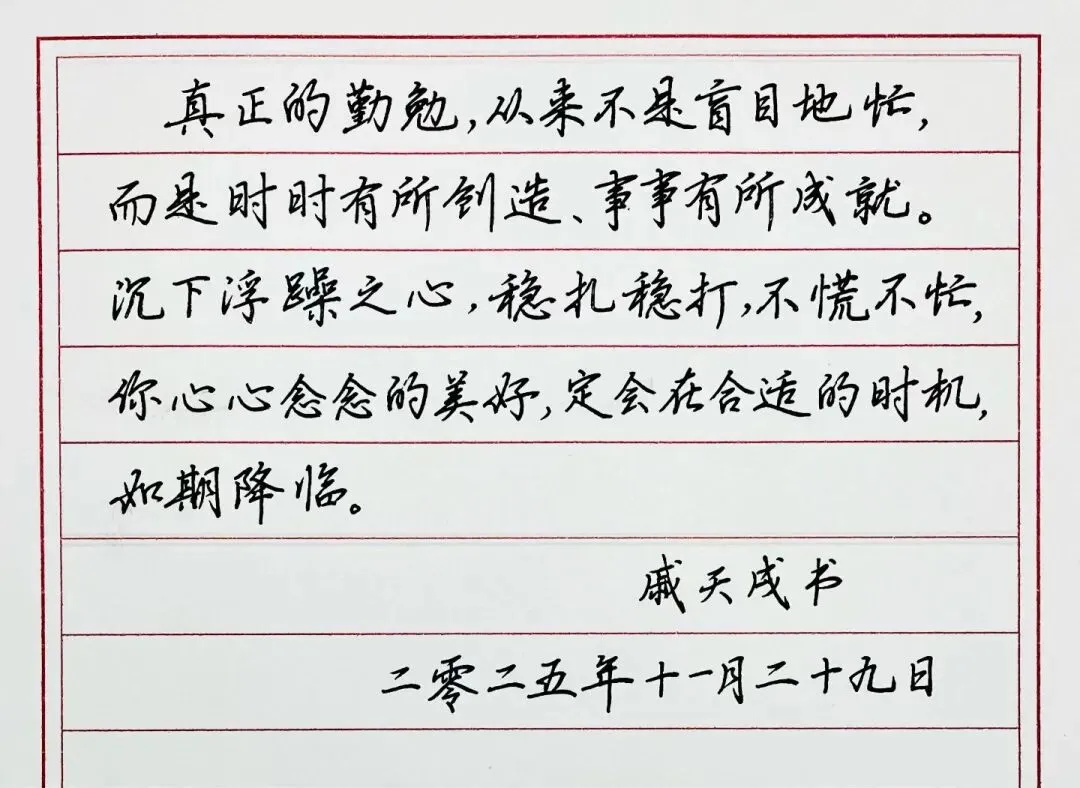 真正的勤勉,从来不是盲目地忙,
而是时时有所创造、事事有所成就。
沉下浮躁之心,稳扎稳打,不慌不忙,
你心心念念的美好,定会在合适的时机,
如期降临。
戚天成书
二零二五年十一月二十九日